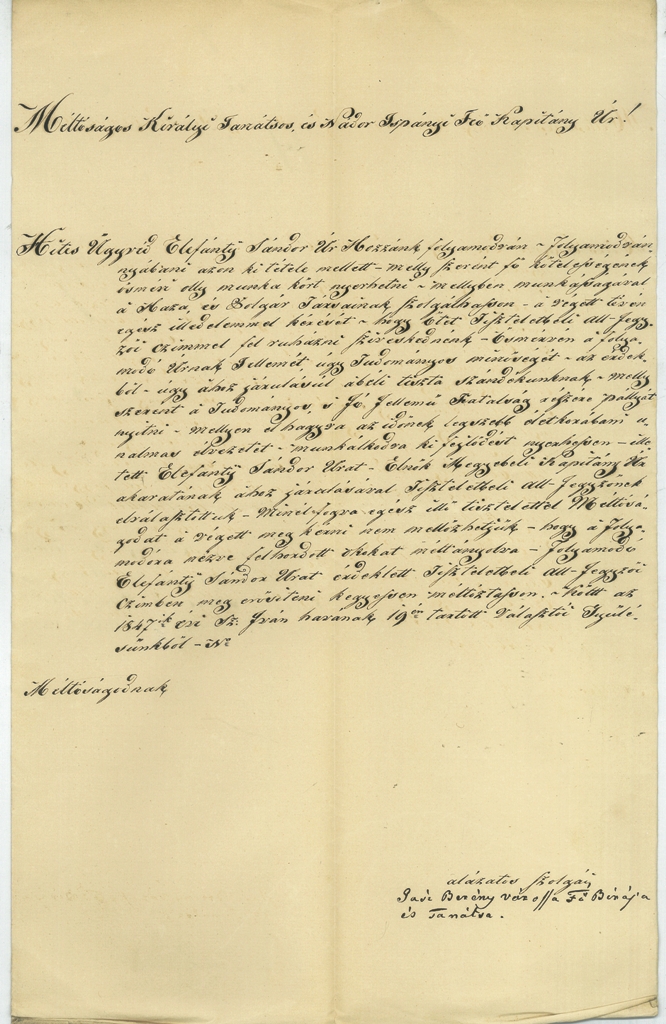 Méltóságos Királyi Tanátsos, és Nádor Ispányi Fő Kapitány Úr!
Hites Ügyvéd Elefánty Sándor Úr Hozzánk folyamodván – folyamodván-
nyábani azon ki tétele mellett – melly szerént fő kötelességének
ösmeri olly munka kört nyerhetni – mellyben munkásságával
á Haza, és Polgár Társainak szolgálhasson – á végett lévén
egész illedelemmel kérését – hogy Őtet Tiszteletbeli All-Jegy-
zői czimmel fel ruházni szíveskednénk – Ésmervén á folya-
modó Úrnak Jellemét, úgy Tudományos minőségét – az érdek-
ből – úgy ához járulásúl ábeli tiszta szándékunknak – melly
szerént á Tudományos, s Jó Jellemű Fiatalság részére pállyát
nyitni – mellyen el hagyva az időnek legszebb életkorábani u-
nalmas élvezetét – munkálkodva ki fejlődést nyerhessen – ille-
tett Elefánty Sándor Urat – Elnök Meggyebéli Kapitány Úr
akaratának ához járulásával Tiszteletbeli All-Jegyzőnek
elválasztottuk – Minél fogva egész illő tisztelettel Méltósá-
godat á végett meg kérni nem mellőzhetjük – hogy á folya-
modóra nézve felhordott okokat méltányolva – folyamodó
Elefánty Sándor Urat érdeklett Tiszteletbeli All-Jegyzői
Czimben meg erősíteni kegyessen méltóztasson. – Költ az
1847ik évi Sz: Iván havának 19én tartott Választói Gyűlé-
sünkből –
Méltóságodnak
alázatos szolgái
Jász Berény várossa Fő Birája
és Tanátsa.